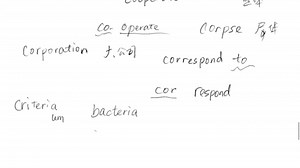 Co operate Corpse
Corporation 大公司 correspond to
cor respond
Criteria bacteria
um